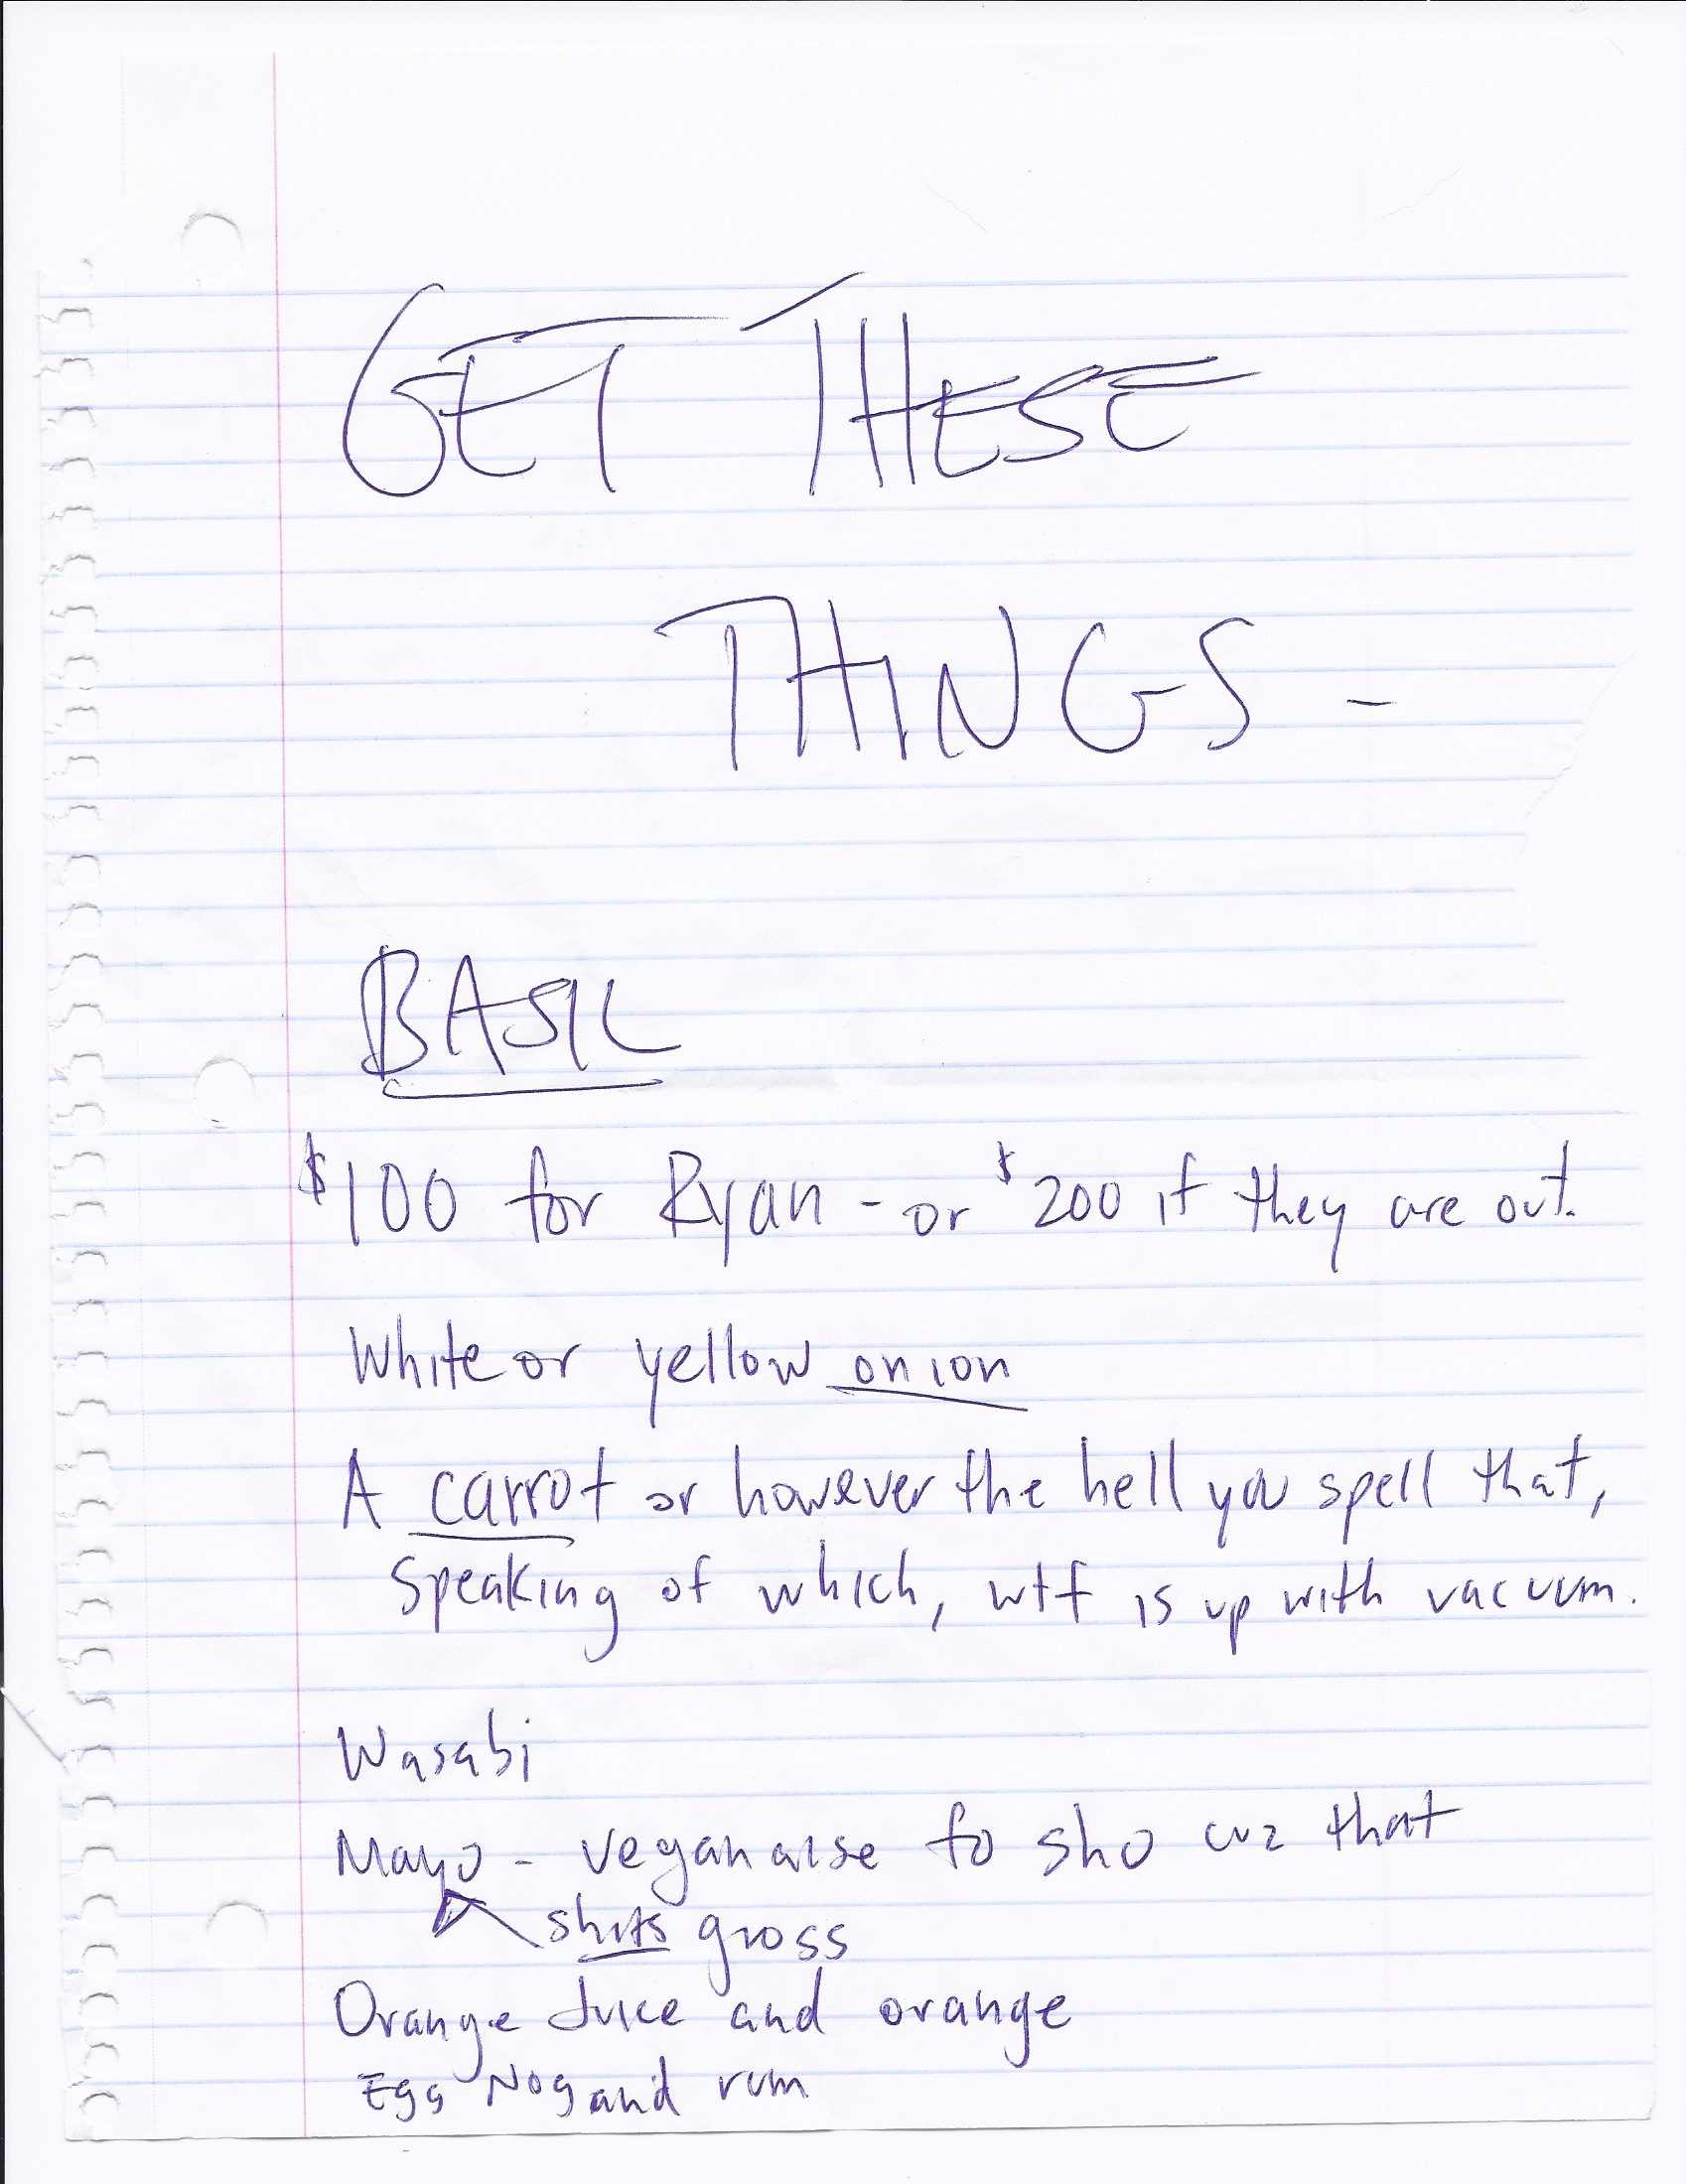 GET THESE
THINGS -
BASIL
$100 for Ryan - or $200 if they are out.
White or yellow onion
A carrot or however the hell you spell that,
Speaking of which, wtf is up with vacuum.
Wasabi
Mayo - veganaise fo sho cuz that
shits gross
Orange Juice and orange
Egg Nog and rum